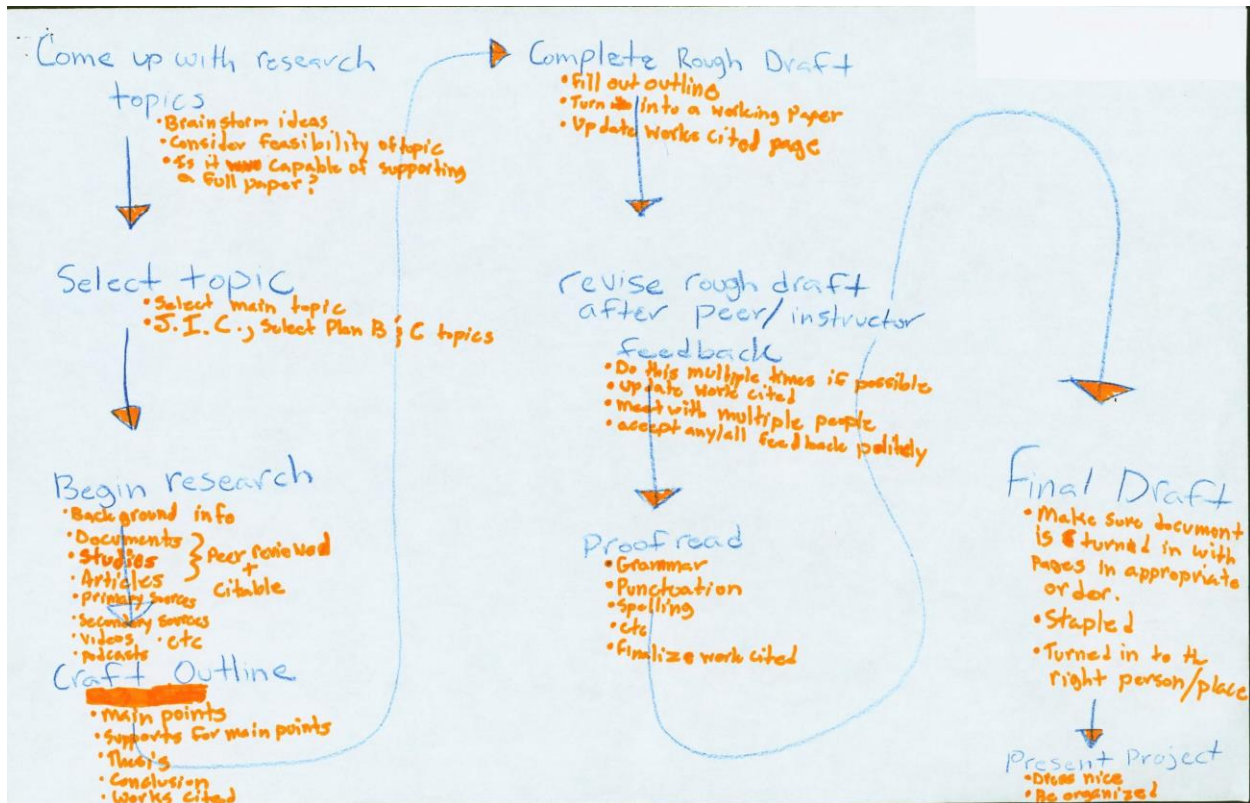 Come up with research
topics
• Brainstorm ideas
• Consider feasibility of topic
• Is it capable of supporting
a full paper?
Select topic
• Select main topic
• J.I.C., Select Plan B & C topics
Begin research
• Background info
• Documents
• Studies
• Articles
} Peer reviewed
+
Citable
• primary sources
• Secondary sources
• Videos • etc
• podcasts
Craft Outline
• main points
• Supports for main points
• Thesis
• Conclusion
• Works cited
Complete Rough Draft
• Fill out outline
• Turn into a working Paper
• Update works cited page
revise rough draft
after peer/instructor
feedback
• Do this multiple times if possible
• update work cited
• meet with multiple people
• accept any/all feedback politely
Proofread
• Grammar
• Punctuation
• Spelling
• etc
• Finalize work cited
Final Draft
• Make sure document
is turned in with
pages in appropriate
order.
• Stapled
• Turned in to the
right person/place
Present Project
• Dress nice
• Be organized